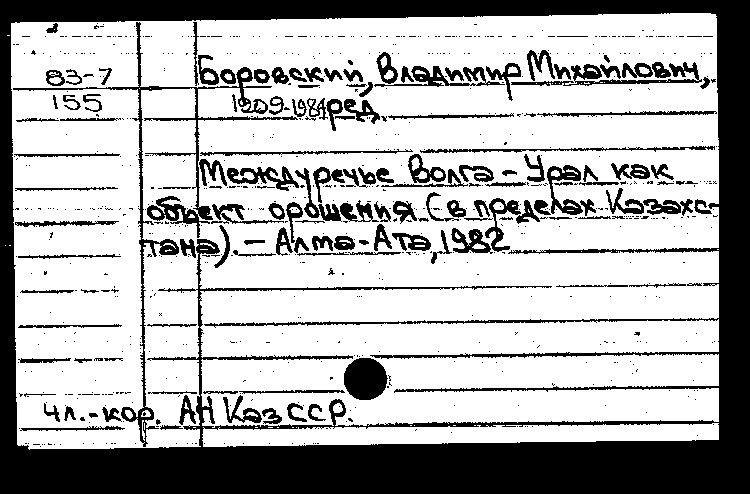 83-7
155
Боровский, Владимир Михайлович,
1909-1984, ред.
Междуречье Волга - Урал как
объект орошения (в пределах Казахс-
тана). - Алма-Ата, 1982
чл.-кор. АН Каз ССР.